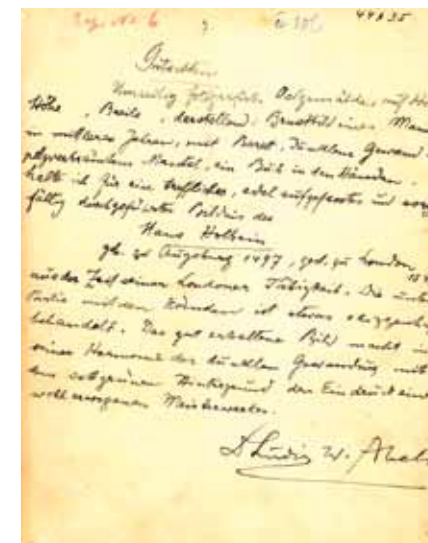 44835
Gutachten
Umseitig fotografiertes Oelgemälde, auf Ho
Höhe, Breite, darstellend: Brustbild eines Mann
in mittleren Jahren, mit Barett, dunklem Gewand
pelzverbrämtem Mantel, ein Buch in den Händen.
halte ich für ein treffliches, edel aufgefasstes und sorg
fältig durchgeführtes Bildnis des
Hans Holbein
gb. zu Augsburg 1497, gest. zu London 154
aus der Zeit seiner Londoner Tätigkeit. Die unte
Partie mit den Händen ist etwas
behandelt. Das gut erhaltene Bild macht in
seiner Harmonie des dunklen Gewandes mit
dem satgrünen Hintergrund den Eindruck eine
wohl erwogenen Meisterwerkes.
Dr Ludwig W. Abels